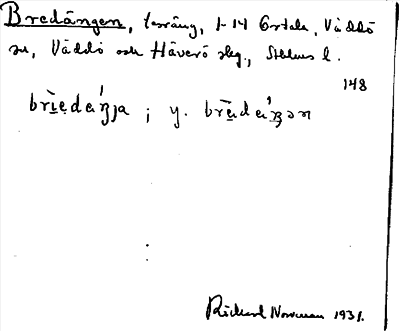 Bredängen, terräng, 1-14 Ortala, Väddö
sn, Väddö och Häverö slg., Sthlms l.
148
brìe̯da'ŋja ; y. brèi̯da'ŋən
Richard Norrman 1931.